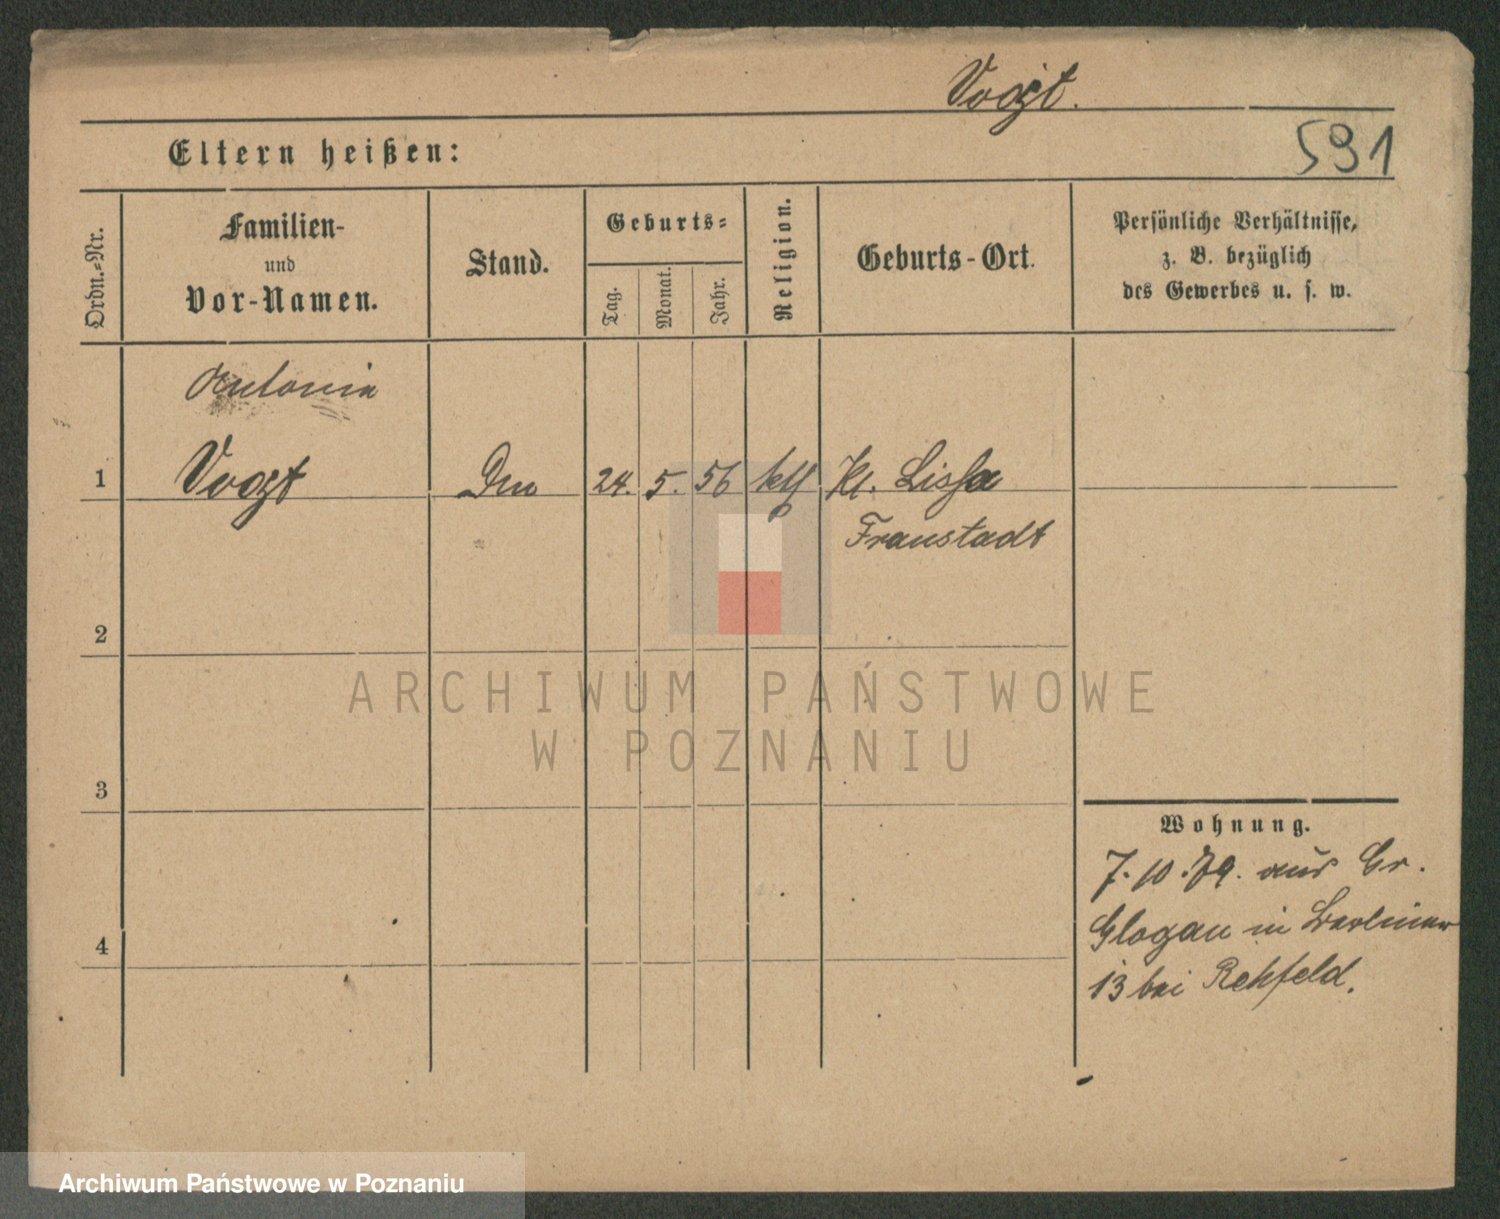 Vogt.
Eltern heißen:
591
Ordn.-Nr.
Familien-
und
Vor-Namen.
Stand.
Geburts-
Tag.
Monat.
Jahr.
Religion.
Geburts-Ort.
Persönliche Verhältnisse,
z. B. bezüglich
des Gewerbes u. s. w.
Antonie
1 Vogt 24. 5. 56 kth Kl. Lissa
Fraustadt
2
ARCHIWUM PAŃSTWOWE
W POZNANIU
3
Wohnung.
7.10.79. aus Gr.
Glogau in Berliner
4
13 bei Rehfeld.
Archiwum Państwowe w Poznaniu